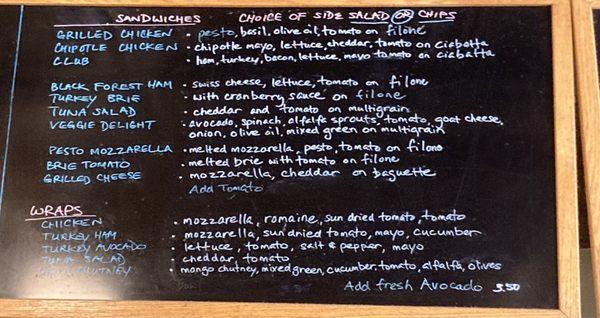 SANDWICHES CHOICE OF SIDE SALAD OR CHIPS
GRILLED CHICKEN • pesto, basil, olive oil, tomato on filone
CHIPOTLE CHICKEN • chipotle mayo, lettuce, cheddar, tomato on ciabatta
CLUB • ham, turkey, bacon, lettuce, mayo tomato on ciabatta
BLACK FOREST HAM • swiss cheese, lettuce, tomato on filone
TURKEY BRIE • with cranberry sauce on filone
TUNA SALAD • cheddar and tomato on multigrain
VEGGIE DELIGHT • avocado, spinach, alfalfa sprouts, tomato, goat cheese,
onion, olive oil, mixed green on multigrain
PESTO MOZZARELLA • melted mozzarella, pesto, tomato on filone
BRIE TOMATO • melted brie with tomato on filone
GRILLED CHEESE • mozzarella, cheddar on baguette
Add Tomato
WRAPS
CHICKEN • mozzarella, romaine, sun dried tomato, tomato
TURKEY HAM • mozzarella, sun dried tomato, mayo, cucumber
TURKEY AVOCADO • lettuce, tomato, salt & pepper, mayo
TUNA SALAD • cheddar, tomato
CHUTNEY • mango chutney, mixed green, cucumber, tomato, alfalfa, olives
Add fresh Avocado 3.50